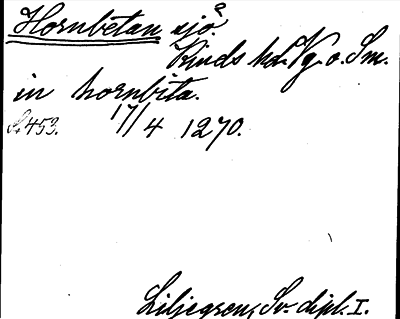 Hornbetan sjö.
Kinds hd. Vg. o. Sm.
in hornbita.
S. 453. 17/4 1270.
Liljegren, Sv. dipl. I.